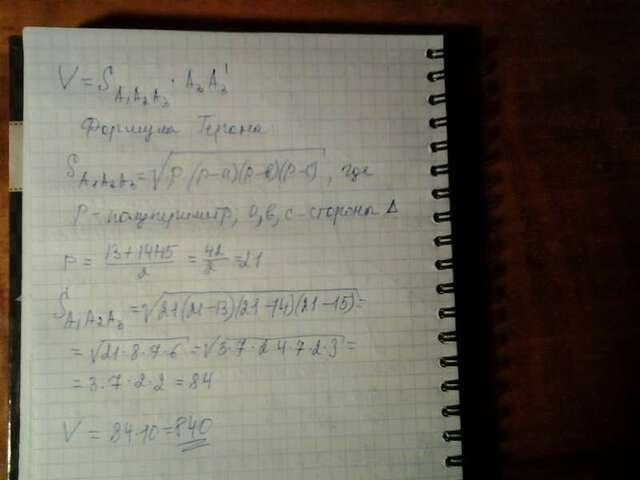 V = S A₁A₂A₃ · A₃A₃'
Формула Герона
S A₁A₂A₃ = √p(p-a)(p-в)(p-c), где
p - полупериметр, a, в, c - стороны Δ
p = (13+14+15)/2 = 42/2 = 21
S A₁A₂A₃ = √21(21-13)(21-14)(21-15) =
= √21·8·7·6 = √3·7·2·4·7·2·3 =
= 3·7·2·2 = 84
V = 84·10 = 840